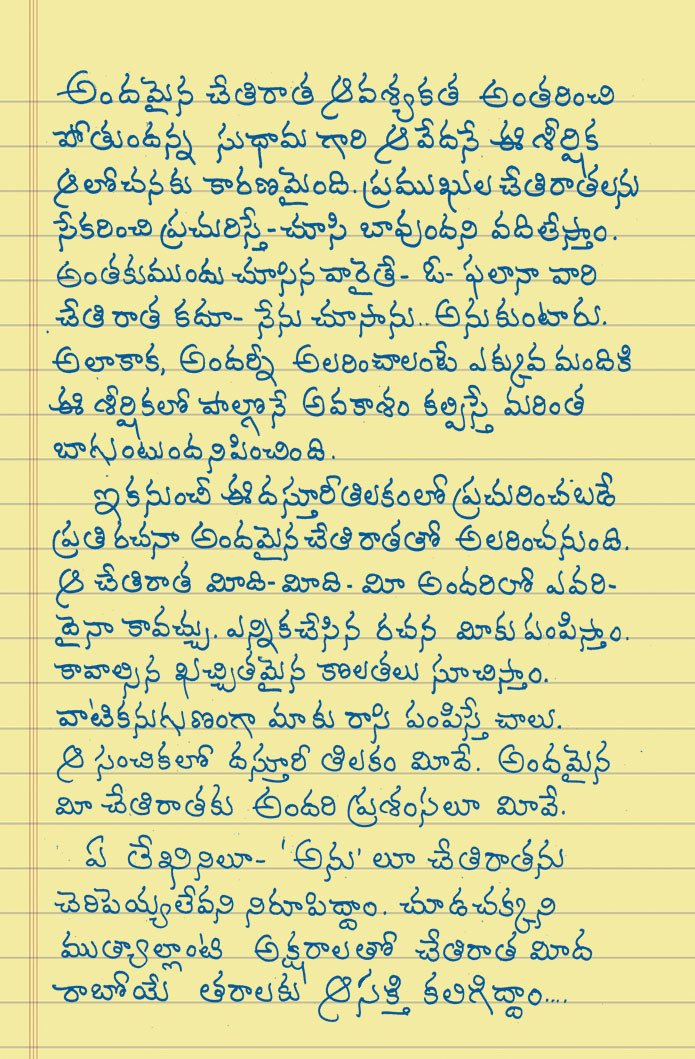 అందమైన చేతిరాత ఆవశ్యకత అంతరించి
పోతుందన్న సుధామ గారి ఆవేదనే ఈ శీర్షిక
ఆలోచనకు కారణమైంది. ప్రముఖుల చేతిరాతలను
సేకరించి ప్రచురిస్తే-చూసి బావుందని వదిలేస్తాం.
అంతకుముందు చూసిన వారైతే- ఓ- ఫలానా వారి
చేతి రాత కదూ- నేను చూసాను.. అనుకుంటారు.
అలాకాక, అందర్నీ అలరించాలంటే ఎక్కువ మందికి
ఈ శీర్షికలో పాల్గొనే అవకాశం కల్పిస్తే మరింత
బాగుంటుందనిపించింది.
ఇకనుంచీ ఈ దస్తూరీతిలకంలో ప్రచురించబడే
ప్రతి రచనా అందమైన చేతి రాతతో అలరించనుంది.
ఆ చేతిరాత మీది-మీది- మీ అందరిలో ఎవరి-
దైనా కావచ్చు. ఎన్నికచేసిన రచన మీకు పంపిస్తాం.
కావాల్సిన ఖచ్చితమైన కొలతలు సూచిస్తాం.
వాటికనుగుణంగా మాకు రాసి పంపిస్తే చాలు.
ఆ సంచికలో దస్తూరీ తిలకం మీదే. అందమైన
మీ చేతిరాతకు అందరి ప్రశంసలూ మీవే.
ఏ లేఖినిలూ- 'అను' లూ చేతిరాతను
చెరిపెయ్యలేవని నిరూపిద్దాం. చూడచక్కని
ముత్యాల్లాంటి అక్షరాలతో చేతిరాత మీద
రాబోయే తరాలకు ఆసక్తి కలిగిద్దాం....